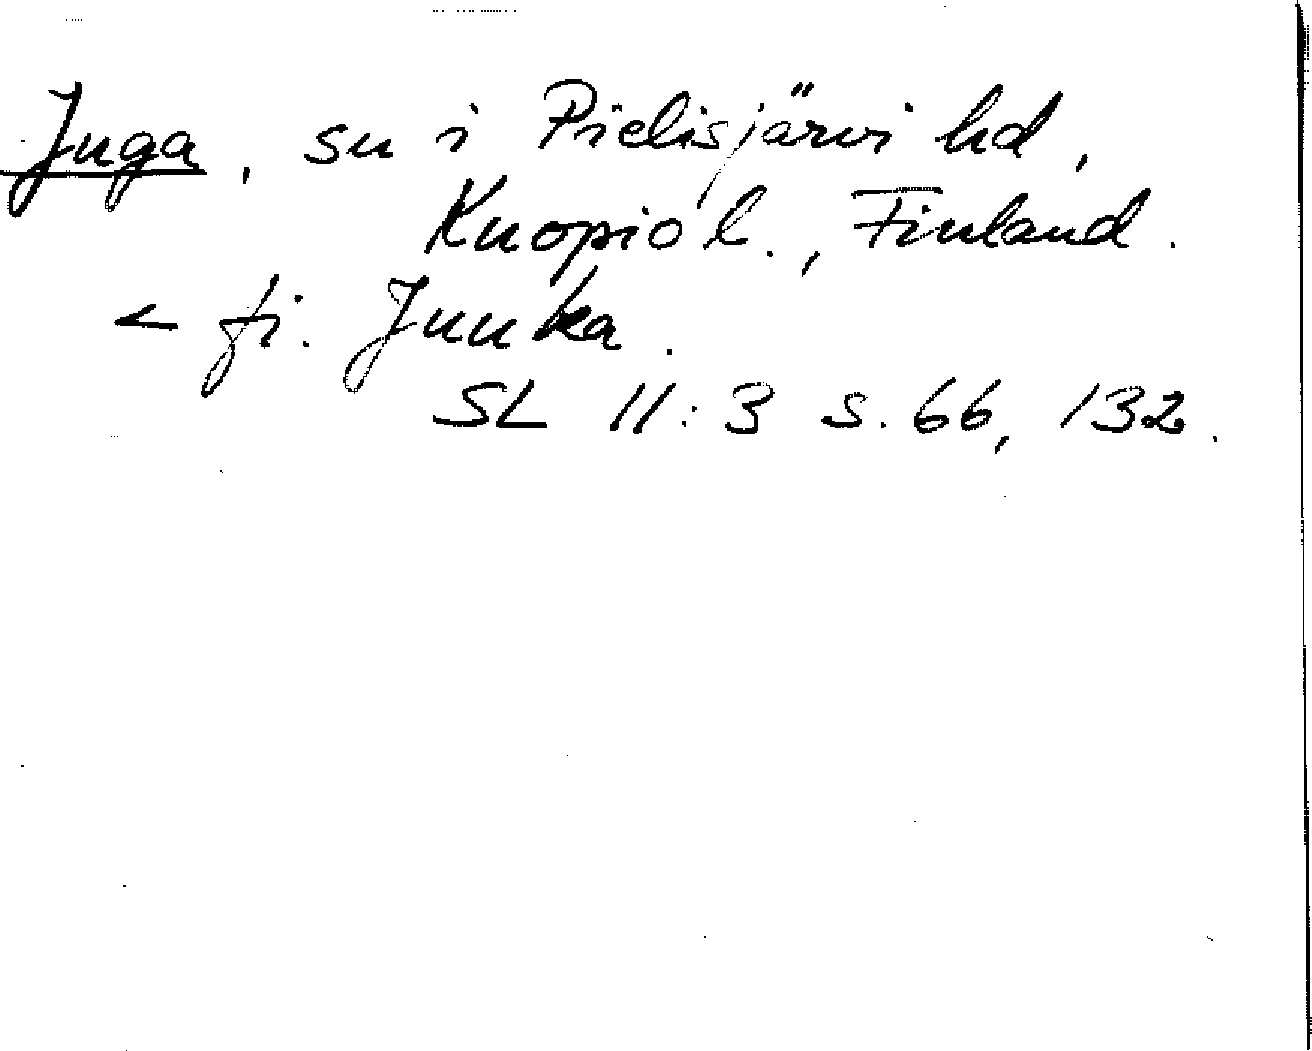 Juga, sn i Pielisjärvi hd,
Kuopio l., Finland.
< fi. Juuka.
SL 11:3 s. 66, 132.